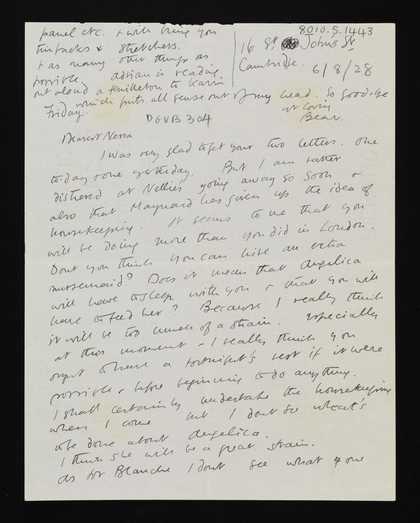 panel etc. & will bring you
tintacks & stretchers.
& as many other things as
possible. Adrian is reading
out aloud a to Karin
which puts all sense out of my head. So goodbye
Friday. yr loving
Bear.
8010.5.1443
16 St Johns St
Cambridge. 6/8/28
DGVB304
Dearest Nessa
I was very glad to get your two letters. One
today & one yesterday. But I am rather
distressed at Nellie's going away so soon &
also that Maynard has given up the idea of
housekeeping. It seems to me that you
will be doing more than you did in London.
Dont you think you can hire an extra
nursemaid? Does it mean that Angelica
will have to sleep with you & that you will
have to feed her? Because I really think
it will be too much of a strain. Especially
at this moment – I really think you
ought to have a fortnight's rest if it were
possible – before beginning to do anything.
I shall certainly undertake the housekeeping
when I come but I dont see what's
to be done about Angelica.
I think she will be a great strain.
As for Blanche I dont see what one